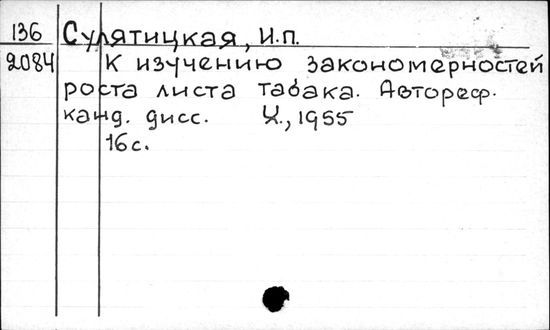 136 Сулятицкая, И.П.
2084 К изучению закономерностей
роста листа табака. Автореф.
канд. дисс. Х., 1955
16с.